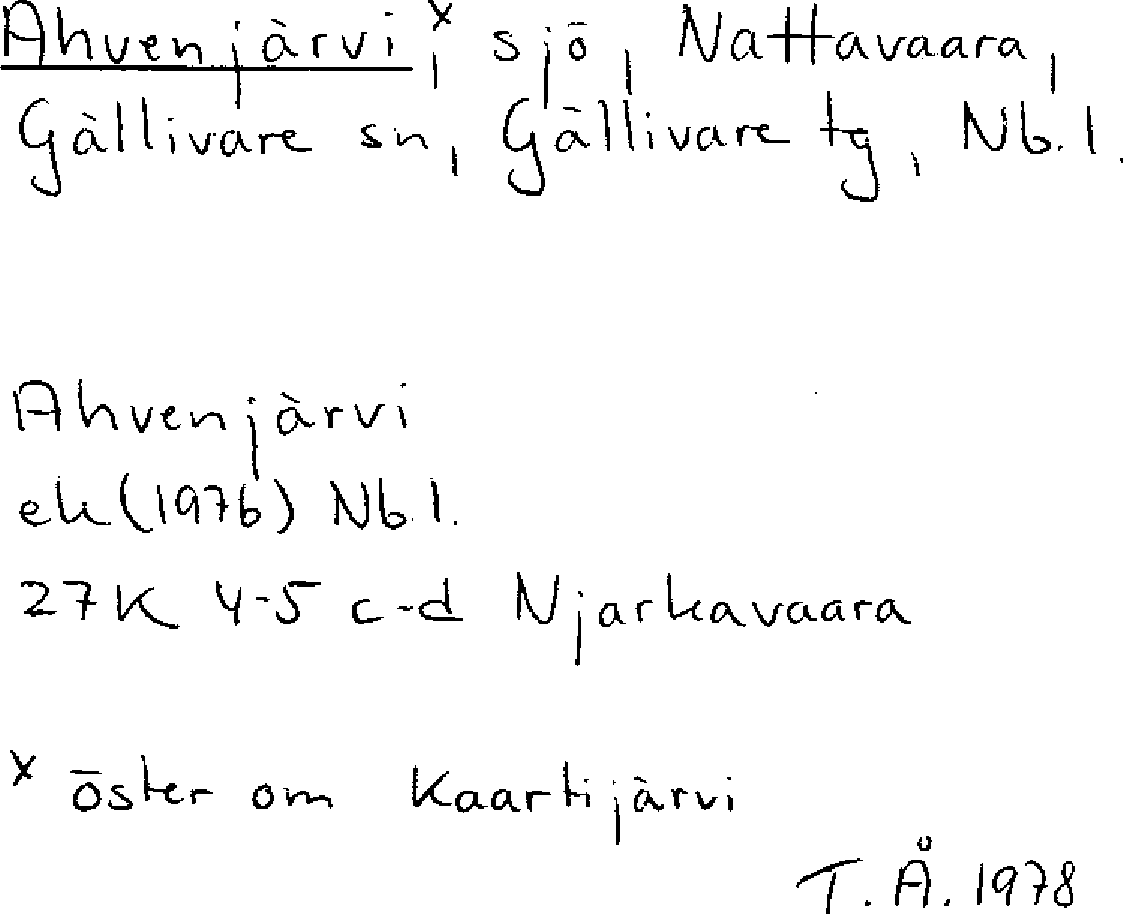 Ahvenjärvi ˣ, sjö, Nattavaara,
Gällivare sn, Gällivare tg, Nb. l.
Ahvenjärvi
ek (1976) Nb l.
27K 4-5 c-d Njarkavaara
ˣ öster om Kaartijärvi
T. Å. 1978